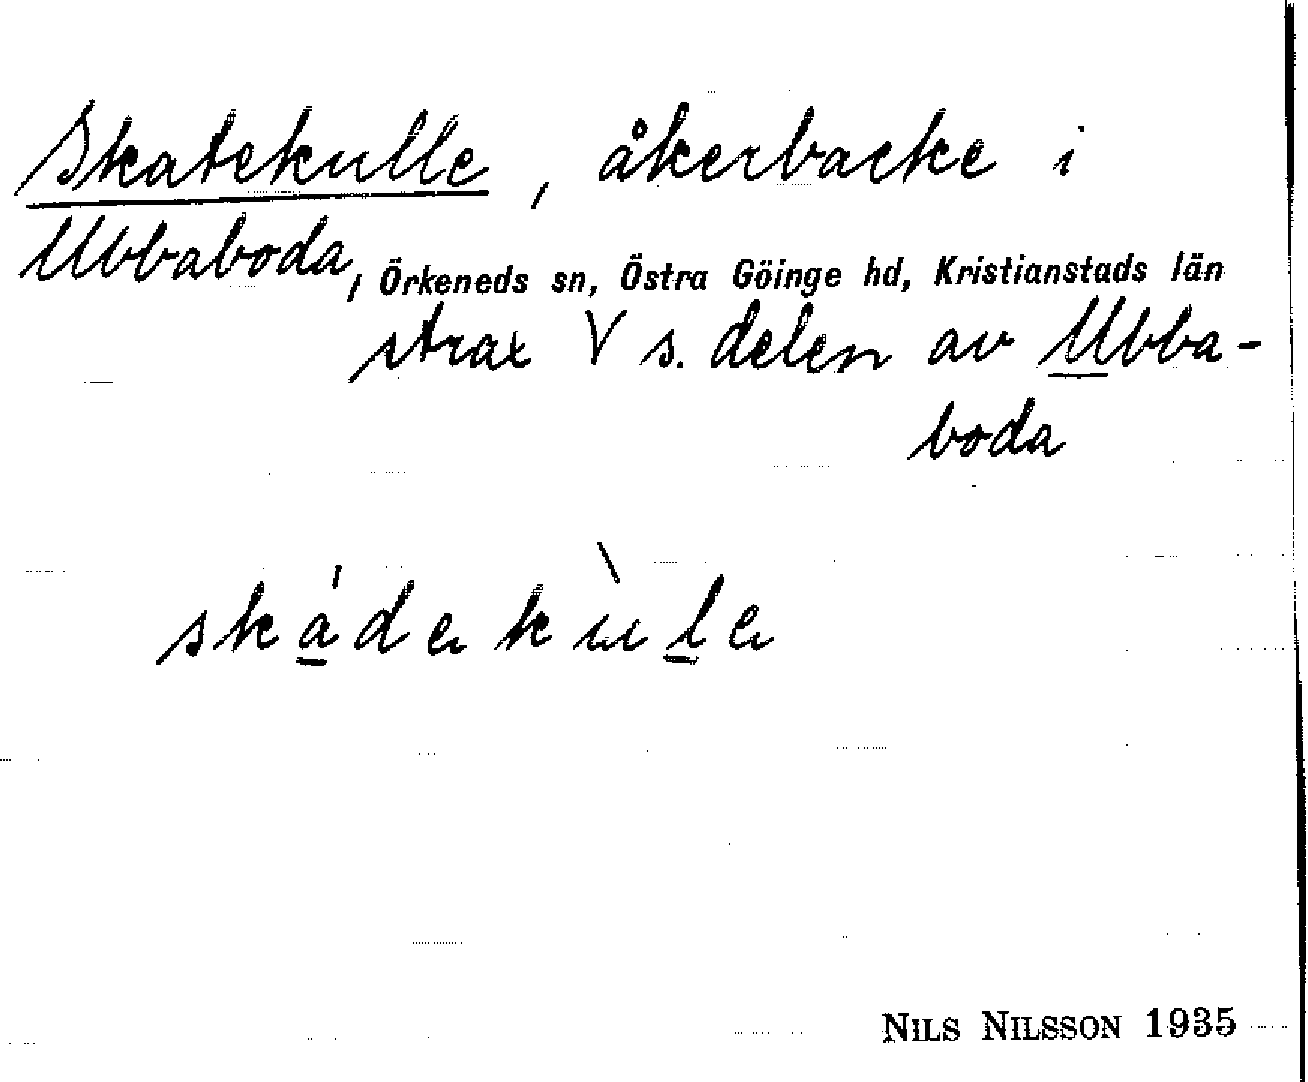 Skatekulle, åkerbacke i
Ubbaboda, Örkeneds sn, Östra Göinge hd, Kristianstads län
strax V s. delen av Ubba-
boda
skádekùle
NILS NILSSON 1935